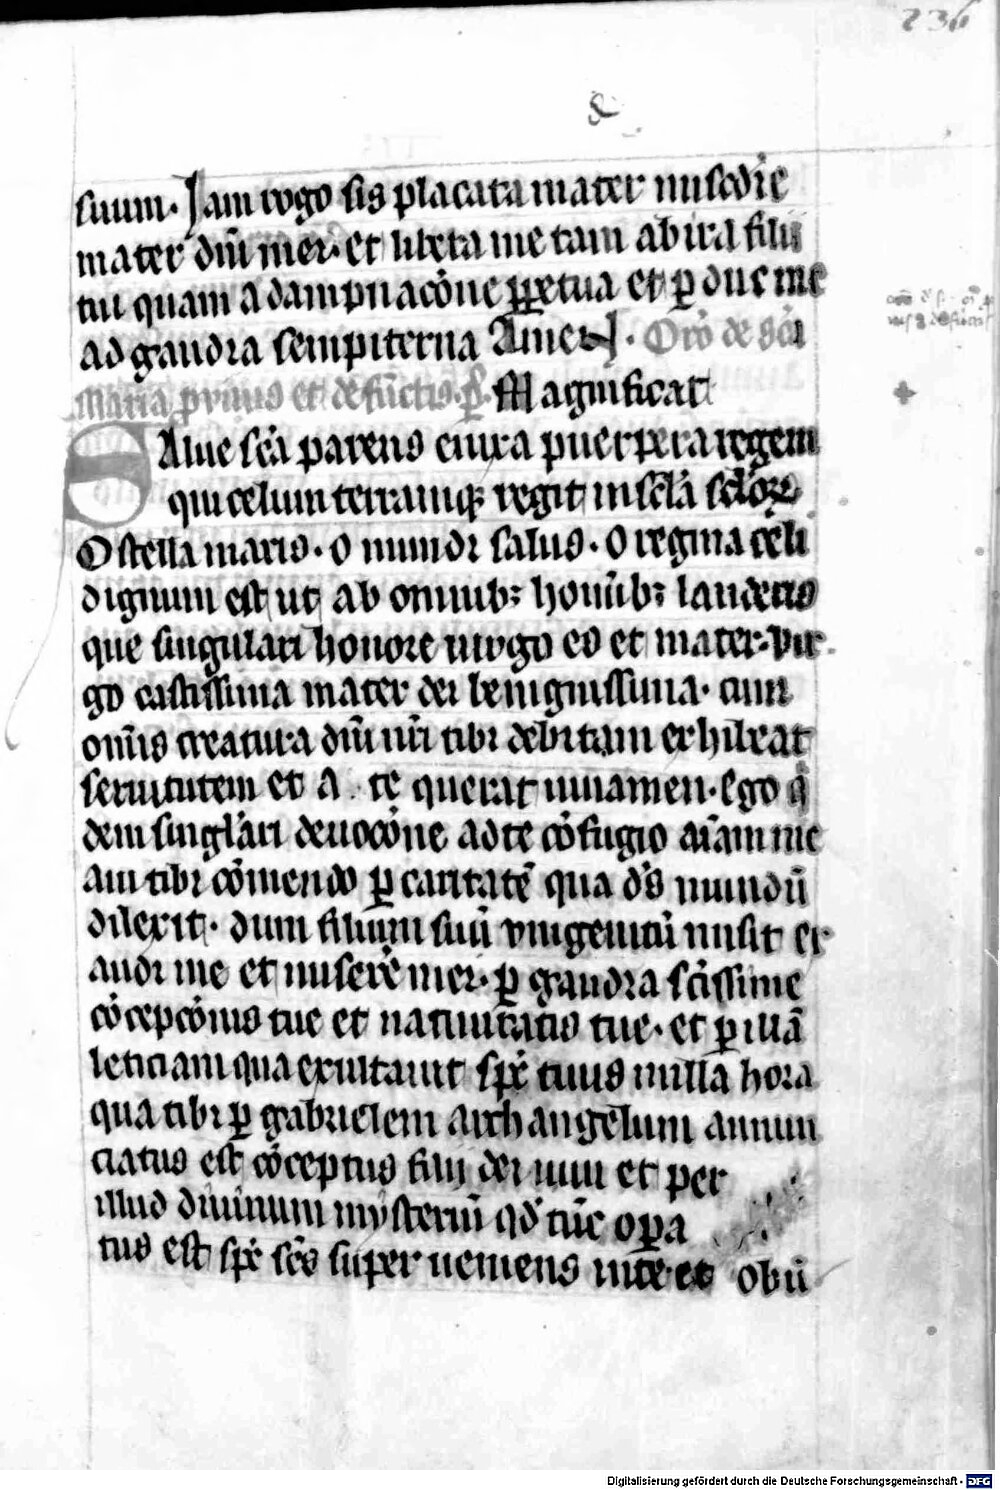 236
suum. Jam rogo sis placata mater misc̄die
mater dñi mei. et libera me tam ab ira filii
tui quam a dampnacōne ꝑpetua et ꝑduc me
ad gaudia sempiterna Amen. Oro de sc̄a
Maria pͥmus et defūctis. pͭ. Magnificat
Salue sc̄a parens enixa puerpera regem
qui celum terramqꝫ regit in sc̄la sc̄loꝝ
O stella maris. o mundi salus. O regina celi
dignum est ut ab omnibꝫ homībꝫ lauderis
que singulari honore uirgo es et mater. vir
go castissima mater dei benignissima. cum
om̄is creatura dn̄i nr̄i tibi debitam exhibeat
seruitutem et a te querat iuuamen. Ego qͥ
dem singl'ari deuocōne ad te cōfugio aīam me
am tibi cōmendo ꝑ caritatē qua d's mundū
dilexit. dum filium suū vnigenitū misit ex
audi me et miserē mei. ꝑ gaudia sc̄issime
cōcepcōnis tue et natiuitatis tue. et ꝑ illā
leticiam qua exultauit sp̄c tuus in illa hora
qua tibi ꝑ gabrielem archangelum annun
ciatus est cōceptus filii dei uiui et per
illud diuinum mysteriū qd' tūc oꝑa
tus est sp̄c sc̄s super ueniens in te et obū
Digitalisierung gefördert durch die Deutsche Forschungsgemeinschaft - DFG